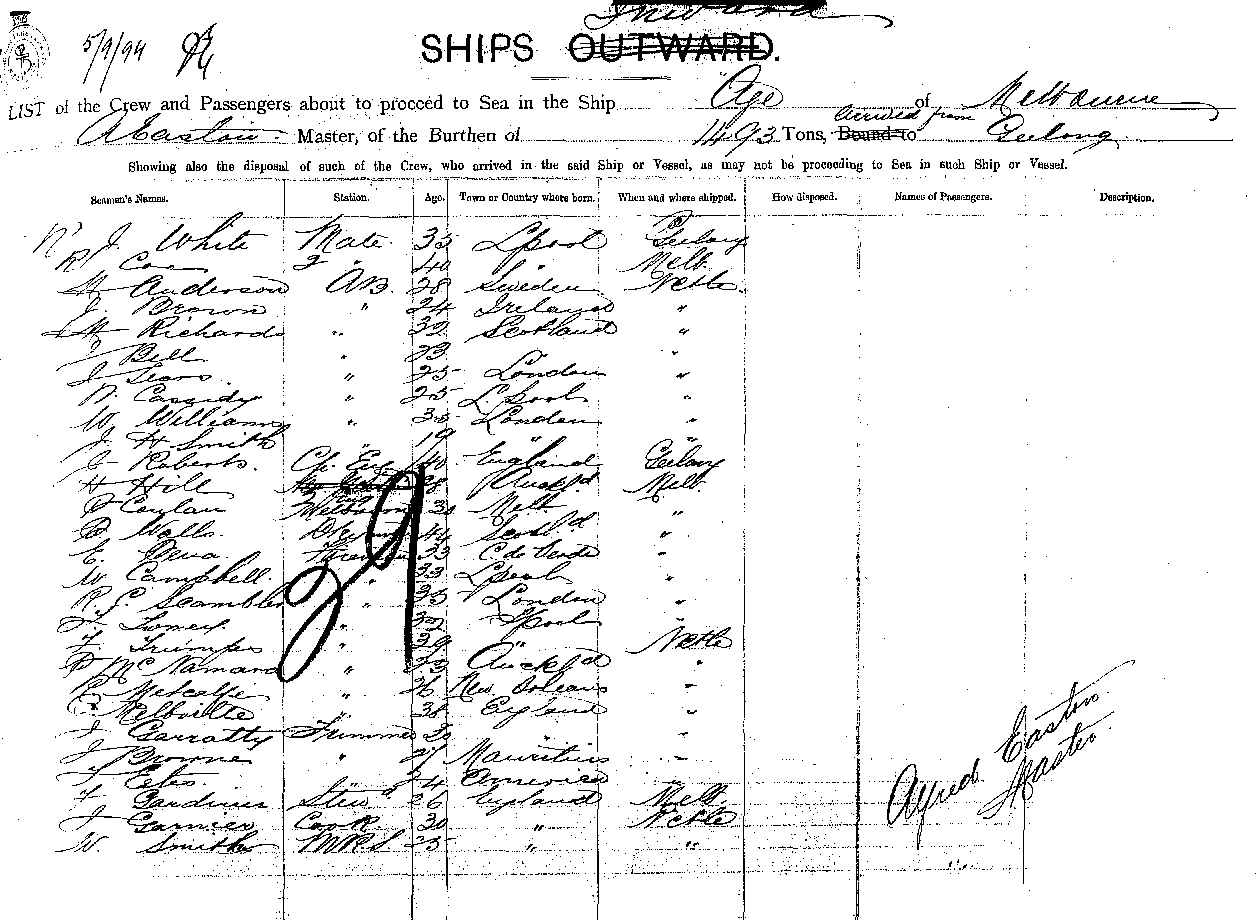 Inward
5/9/94
SHIPS OUTWARD.
LIST of the Crew and Passengers about to procced to Sea in the Ship Age of Melbourne
A Easton Master, of the Burthen of 1493 Tons, Bound to arrived from Geelong
Showing also the disposal of such of the Crew, who arrived in the said Ship or Vessel, as may not be proceeding to Sea in such Ship or Vessel.
Seamen's Names. Station. Age. Town or Country where born. When and where shipped. How disposed. Names of Passengers. Description.
J. White Mate 33 Lpool Geelong
R Cox 2 " 40 Melb.
Anderson AB. 28 Sweden Nctle.
J. Brown " 24 Ireland "
Richards " 32 Scotland "
J Bell " 23 "
J Sears " 25 London "
Cassidy " 25 L.pool "
W. Williams " 35 London "
J. H Smith " 19 " "
J Roberts. Ch. Eng 40 England Geelong
H Hill 28 Auckl'd Melb.
Melbourne Melb "
Walls 44 Scotl'd "
E. Fireman 33 C de Verde "
W. Campbell. " 33 Lpool "
R. J. Scambler " 25 London "
" 32 Lpool
F. " 39 " Nctle
P McNamara " 23 Auckl'd "
Metcalfe " 26 New Orleans "
Melville " 38 England "
J Garratty Trimmer "
J Browne " 27 Mauritius "
24 America
F. Gardiner Stew'd 26 England Melb.
J Garnier Cook 30 " Nctle
W. Smith MRS 25 " "
29
Alfred Easton
Master